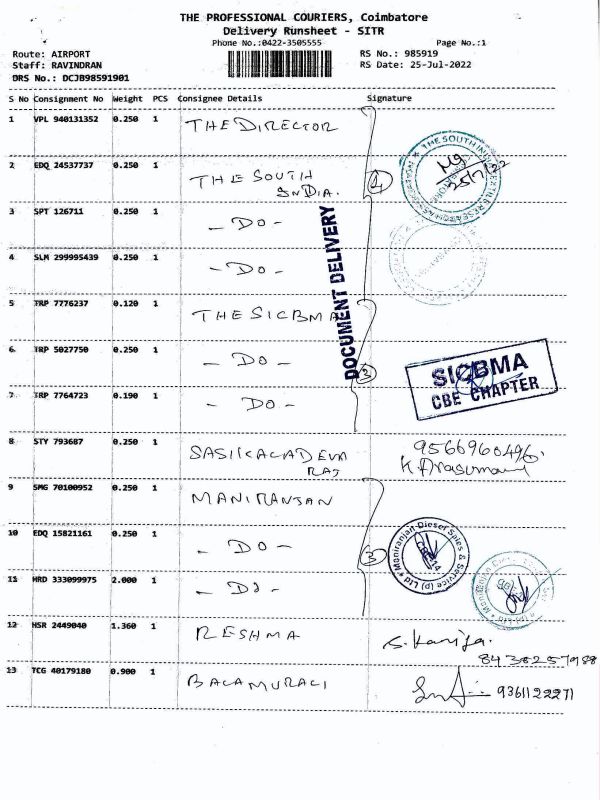 THE PROFESSIONAL COURIERS, Coimbatore
Delivery Runsheet - SITR
Phone No.:0422-3505555 Page No.:1
Route: AIRPORT RS No.: 985919
Staff: RAVINDRAN RS Date: 25-Jul-2022
DRS No.: DCJB98591901
S No Consignment No Weight PCS Consignee Details Signature
1 VPL 940131352 0.250 1 THE DIRECTOR
2 EDQ 24537737 0.250 1 THE SOUTH
INDIA.
4
25/7/22
3 SPT 126711 0.250 1 - DO -
4 SLM 299995439 0.250 1 - DO -
DOCUMENT DELIVERY
5 TRP 7776237 0.120 1 THE SICBMA
6 TRP 5027750 0.250 1 - DO -
3
SICBMA
CBE CHAPTER
7 TRP 7764723 0.190 1 - DO -
8 STY 793687 0.250 1 SASIKALADEVI
RAJ
9566960496.
9 SMG 70100952 0.250 1 MANIRANJAN
10 EDQ 15821161 0.250 1 - DO -
3
Maniranjan Diesel Sales & Service (p) Ltd
11 HRD 333099975 2.000 1 - DO -
12 HSR 2449040 1.360 1 RESHMA
8438257988
13 TCG 40179180 0.900 1 BALAMURALI
9361122271